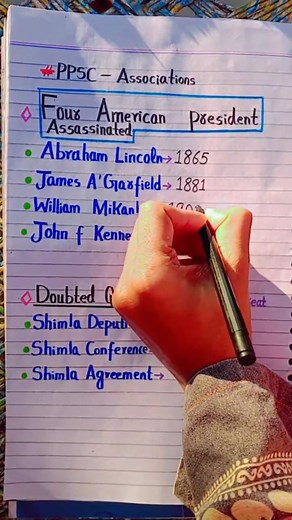 #PPSC - Associations
Four American president
Assassinated
Abraham Lincoln→1865
James A'Garfield→1881
William
John f
Doubted
Shimla
Shimla Conference
Shimla Agreement→